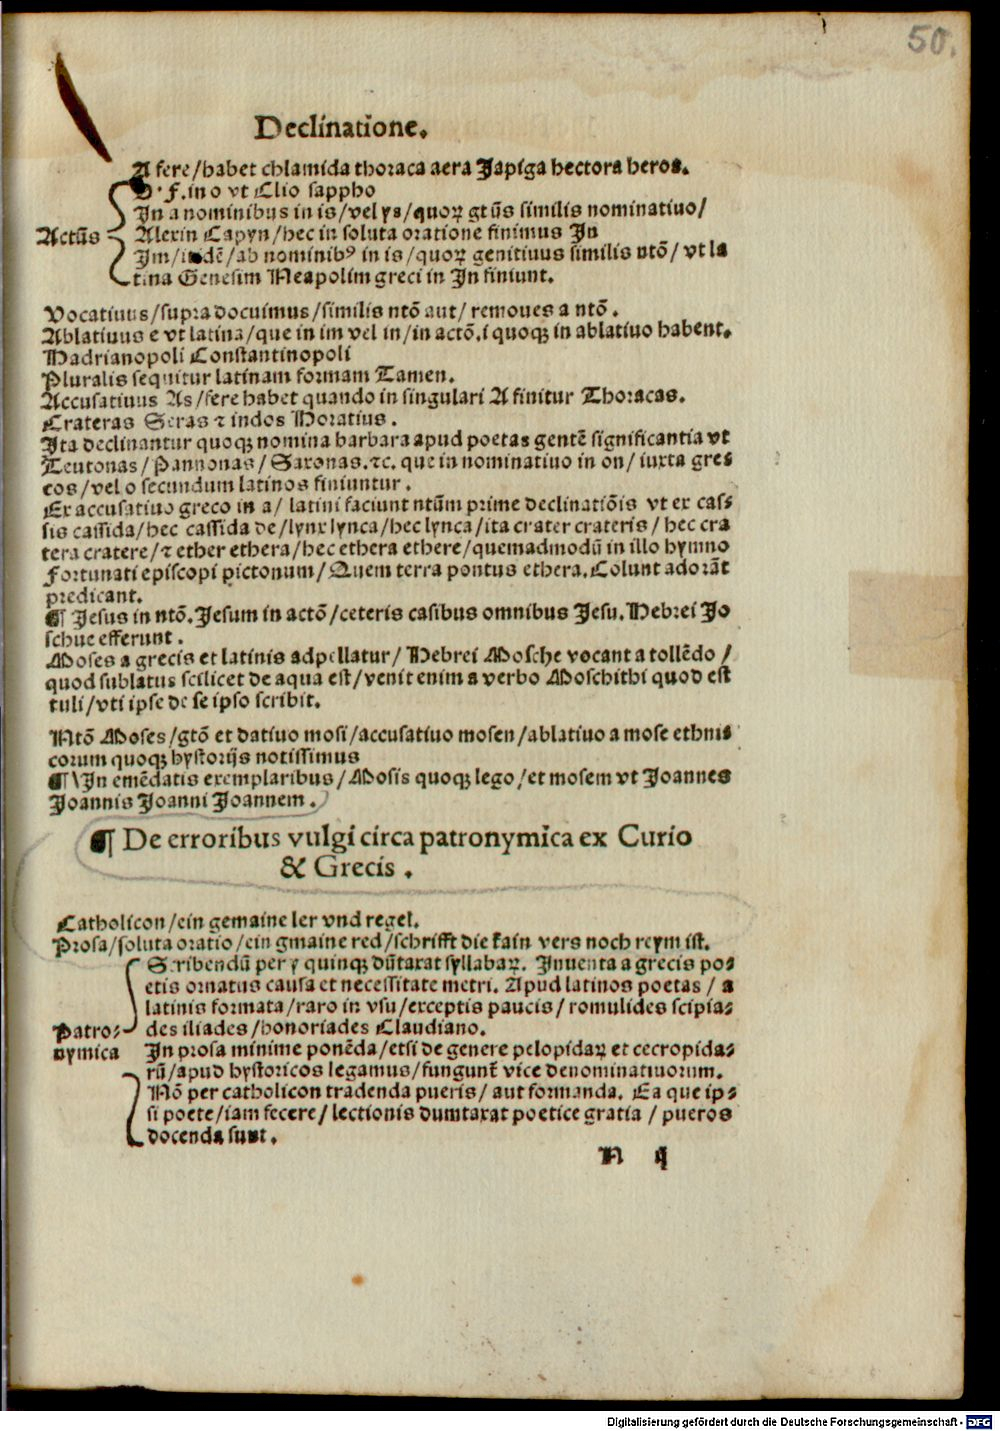 50.
Declinatione.
A fere/habet chlamida thoraca aera Japiga hectora heros.
F. in o vt Clio sappho
In a nominibus in is/vel ys/quoꝝ gtūs similis nominatiuo/
Actūs Alexin Capyn/hec in soluta oratione finimus In
Im/itidē/ab nominibꝰ in is/quoꝝ genitiuus similis ntō/ vt la
tina Genesim Neapolim greci in In finiunt.
Vocatiuus/supra docuimus/similis ntō aut/ remoues a ntō.
Ablatiuus e vt latina/que in im vel in/in actō.i quoqꝫ in ablatiuo habent.
Hadrianopoli Constantinopoli
Pluralis sequitur latinam formam Tamen.
Accusatiuus As/fere habet quando in singulari A finitur Thoracas.
Crateras Seras ⁊ indos Horatius.
Ita declinantur quoqꝫ nomina barbara apud poetas gentē significantia vt
Teutonas/Pannonas/Saxonas.⁊c. que in nominatiuo in on/iuxta gre⸗
cos/vel o secundum latinos finiuntur.
Ex accusatiuo greco in a/ latini faciunt ntūm prime declinatiōis vt ex cas⸗
sis cassida/hec cassida de/lynx lynca/hec lynca/ita crater crateris/ hec cra
tera cratere/⁊ ether ethera/hec ethera ethere/quemadmodū in illo hymno
Fortunati episcopi pictonum/Quem terra pontus ethera.Colunt adorāt
predicant.
¶ Jesus in ntō.Jesum in actō/ceteris casibus omnibus Jesu.Hebrei Jo
schue efferunt.
Moses a grecis et latinis adpellatur/ Hebrei Mosche vocant a tollēdo/
quod sublatus scilicet de aqua est/venit enim a verbo Moschithi quod est
tuli/vti ipse de se ipso scribit.
Ntō Moses/gtō et datiuo mosi/accusatiuo mosen/ablatiuo a mose ethni⸗
corum quoqꝫ hystorijs notissimus
¶ In emēdatis exemplaribus/Mosis quoqꝫ lego/et mosem vt Joannes
Joannis Joanni Joannem.
¶ De erroribus vulgi circa patronymica ex Curio
& Grecis.
Catholicon/ein gemaine ler vnd regel.
Prosa/soluta oratio/ein gmaine red/schrifft die kain vers noch reym ist.
Scribendū per y quinqꝫ dūtaxat syllabaꝝ. Inuenta a grecis po⸗
etis ornatus causa et necessitate metri. Apud latinos poetas / a
latinis formata/raro in vsu/exceptis paucis/romulides scipia⸗
Patro⸗ des iliades/honoriades Claudiano.
nymica In prosa minime ponēda/etsi de genere pelopidaꝝ et cecropida⸗
rū/apud hystoricos legamus/fungunt᷑ vice denominatiuorum.
Nō per catholicon tradenda pueris/ aut formanda. Ea que ip⸗
si poete/iam fecere/lectionis dumtaxat poetice gratia / pueros
docenda sunt.
Digitalisierung gefördert durch die Deutsche Forschungsgemeinschaft - DFG